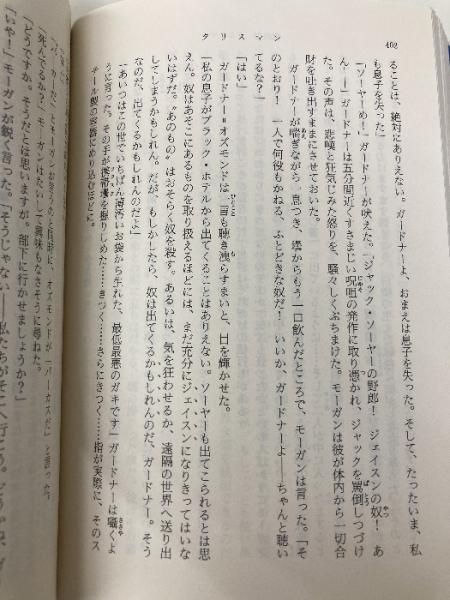 タリスマン
402
ることは、絶対にありえない。ガードナーよ、おまえは息子を失った。そして、たったいま、私
も息子を失った」
「ソーヤーめ！」ガードナーが吠えた。「ジャック・ソーヤーの野郎！　ジェイスンの奴！　あ
ん――」ガードナーは五分間近くすさまじい呪詛の発作に取り憑かれ、ジャックを罵倒しつづけ
た。その声は、悲嘆と狂気じみた怒りを、騒々しくぶちまけた。モーガンは彼が体内から一切合
財を吐き出すままにさせておいた。
ガードナーが喘ぎながら一息つき、壜からもう一口飲んだところで、モーガンは言った。「そ
のとおり！　一人で何役もかねる、ふとどきな奴だ！　いいか、ガードナーよ――ちゃんと聴い
てるな？」
「はい」
ガードナー＝オズモンドは一言も聴き洩らすまいと、目を輝かせた。
「私の息子がブラック・ホテルから出てくることはありえない。ソーヤーも出てこられるとは思
えん。奴はあそこにあるものを取り扱えるほどには、まだ充分にジェイスンになりきってはいな
いはずだ。〝あのもの〟はおそらく奴を殺す。あるいは、気を狂わせるか、遠隔の世界へ送り出
してしまうかもしれん。だが、もしかしたら、奴は出てくるかもしれんのだ、ガードナー。そう
なのだ、出てくるかもしれんのだよ」
「あいつはこの世でいちばん薄汚いお袋から生れた、最低最悪のガキです」ガードナーは囁くよ
うに言った。その手が携帯壜を握りしめた……きつく……さらにきつく……指が実際に、そのス
チール製の容器にめり込むほどに。
オズモンドが「パーカスだ」と言った。
「死んでるか？」モーガンはたいして興味もなさそうに尋ねた。
「どうですか。そうだとは思いますが。部下に行かせましょうか？」
「いや！」モーガンが鋭く言った。「そうじゃない――私たちがそこへ行こう。